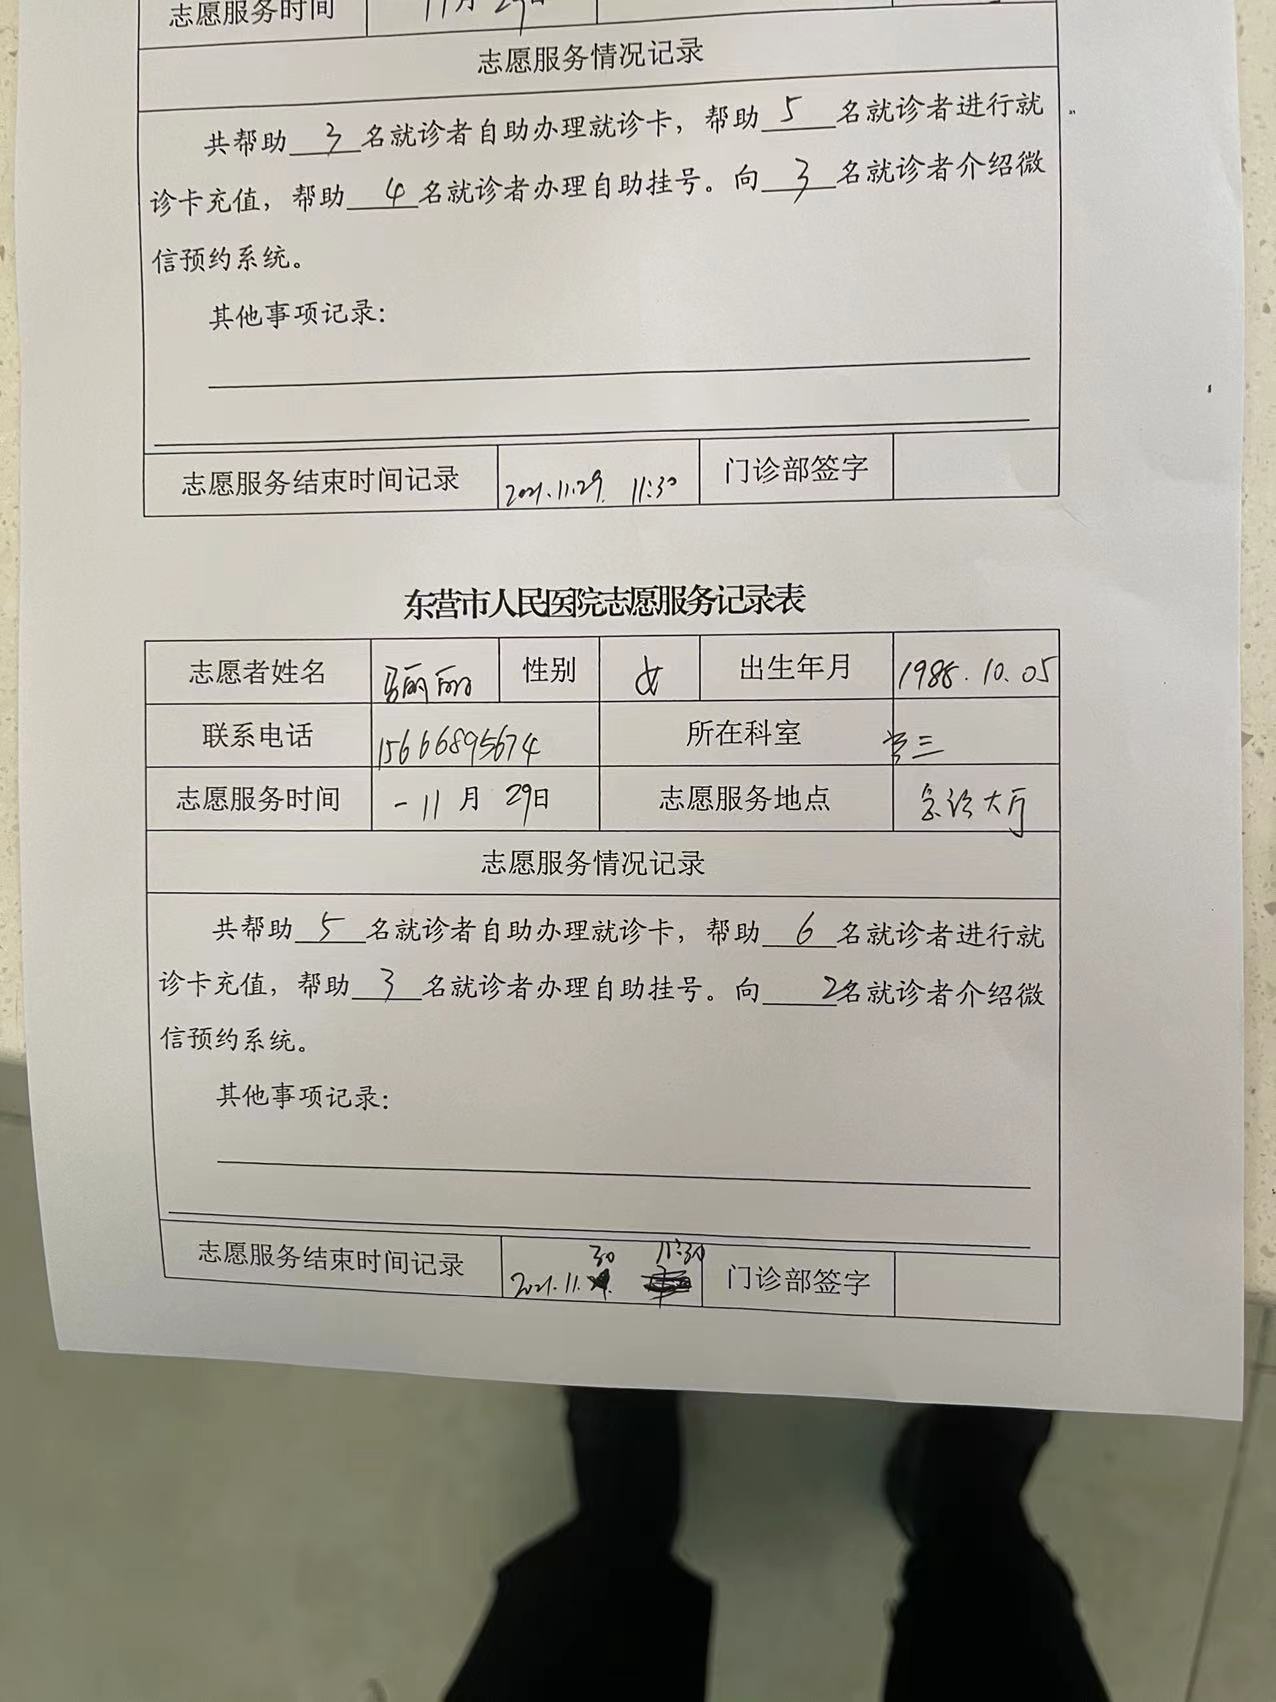 志愿服务时间 11月29日
志愿服务情况记录
共帮助 3 名就诊者自助办理就诊卡，帮助 5 名就诊者进行就
诊卡充值，帮助 4 名就诊者办理自助挂号。向 3 名就诊者介绍微
信预约系统。
其他事项记录：
志愿服务结束时间记录 2021.11.29. 11:30 门诊部签字
东营市人民医院志愿服务记录表
志愿者姓名 丽丽 性别 女 出生年月 1988.10.05
联系电话 15666895674 所在科室 三
志愿服务时间 - 11月 29日 志愿服务地点 急诊大厅
志愿服务情况记录
共帮助 5 名就诊者自助办理就诊卡，帮助 6 名就诊者进行就
诊卡充值，帮助 3 名就诊者办理自助挂号。向 2名就诊者介绍微
信预约系统。
其他事项记录：
志愿服务结束时间记录 2021.11.30 11:30 门诊部签字